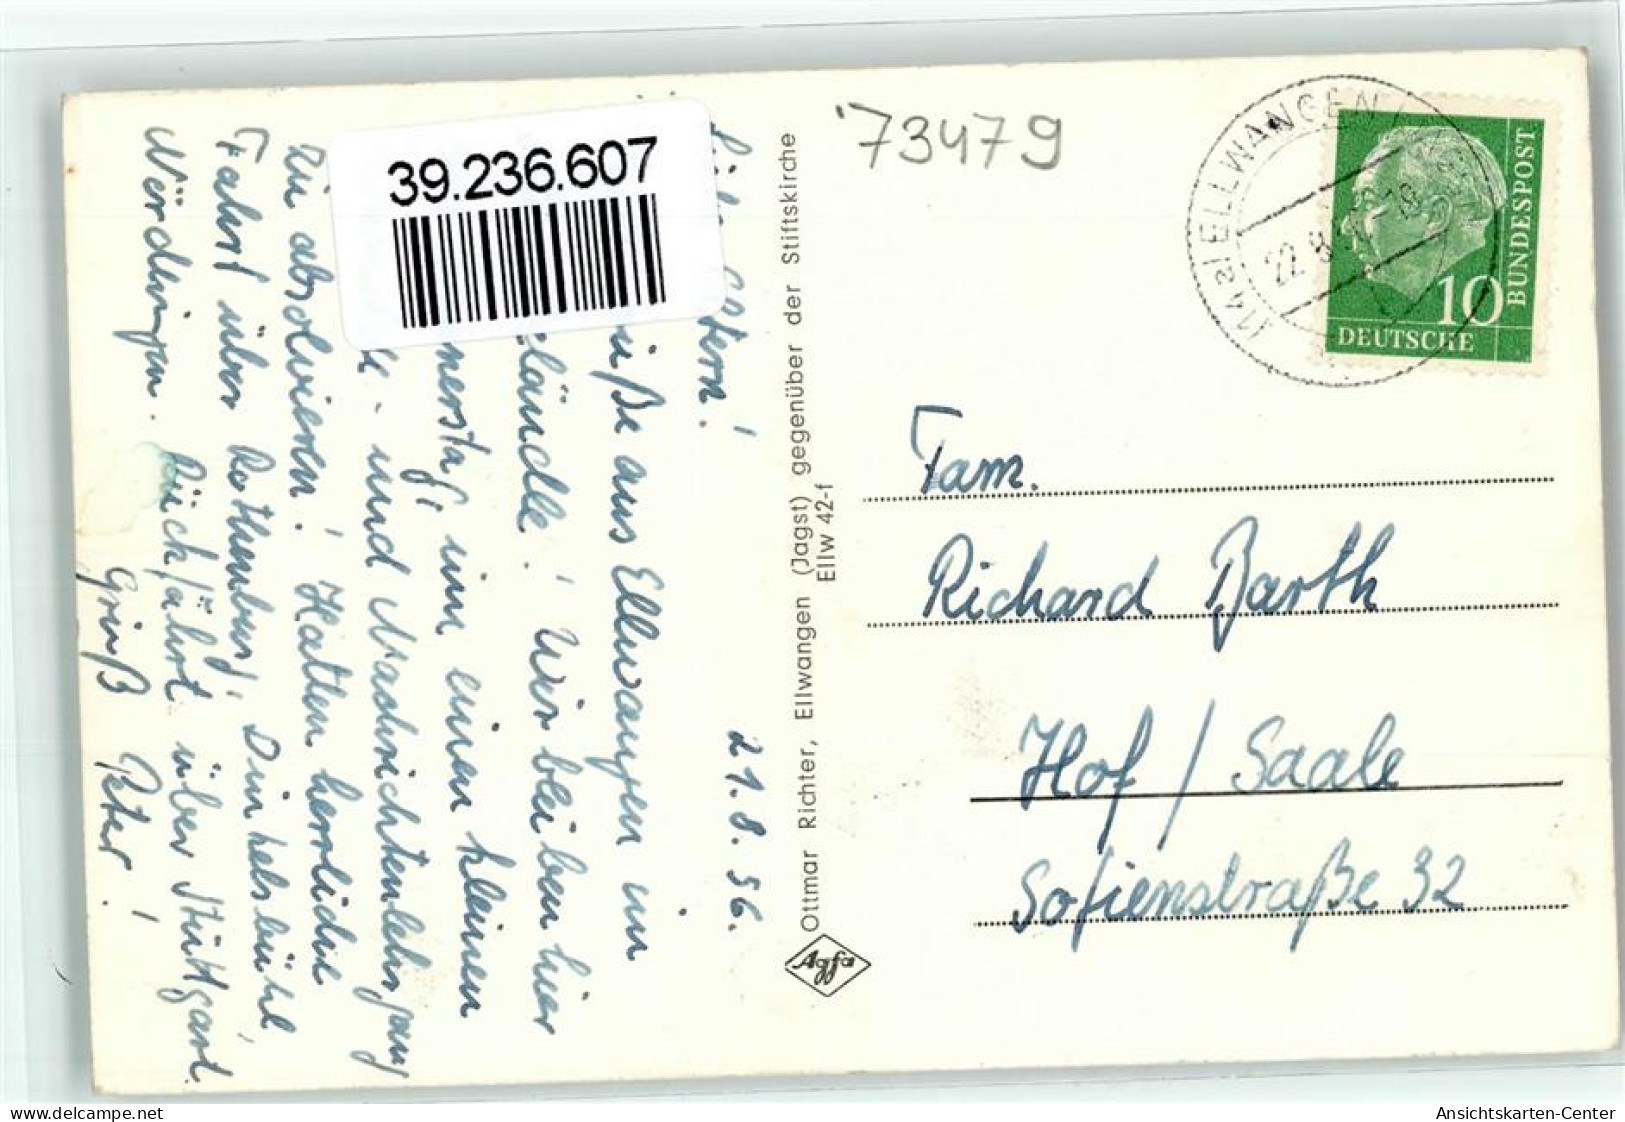 39.236.607
21.8.56.
Eltern!
aus Ellwangen im
ländle! Wir bleiben hier
um einen kleinen
und Nachrichtenlehrgang
zu absolvieren! Hatten herrliche
Fahrt über Rothenburg, Dinkelsbühl,
Nördlingen. Rückfahrt über Stuttgart.
Gruß Peter!
Ottmar Richter, Ellwangen (Jagst) gegenüber der Stiftskirche
Ellw 42-f
Agfa
73479
ELLWANGEN
22. 8.
10
DEUTSCHE
BUNDESPOST
Fam.
Richard Barth
Hof / Saale
Sofienstraße 32
delcampe.net
Ansichtskarten-Center